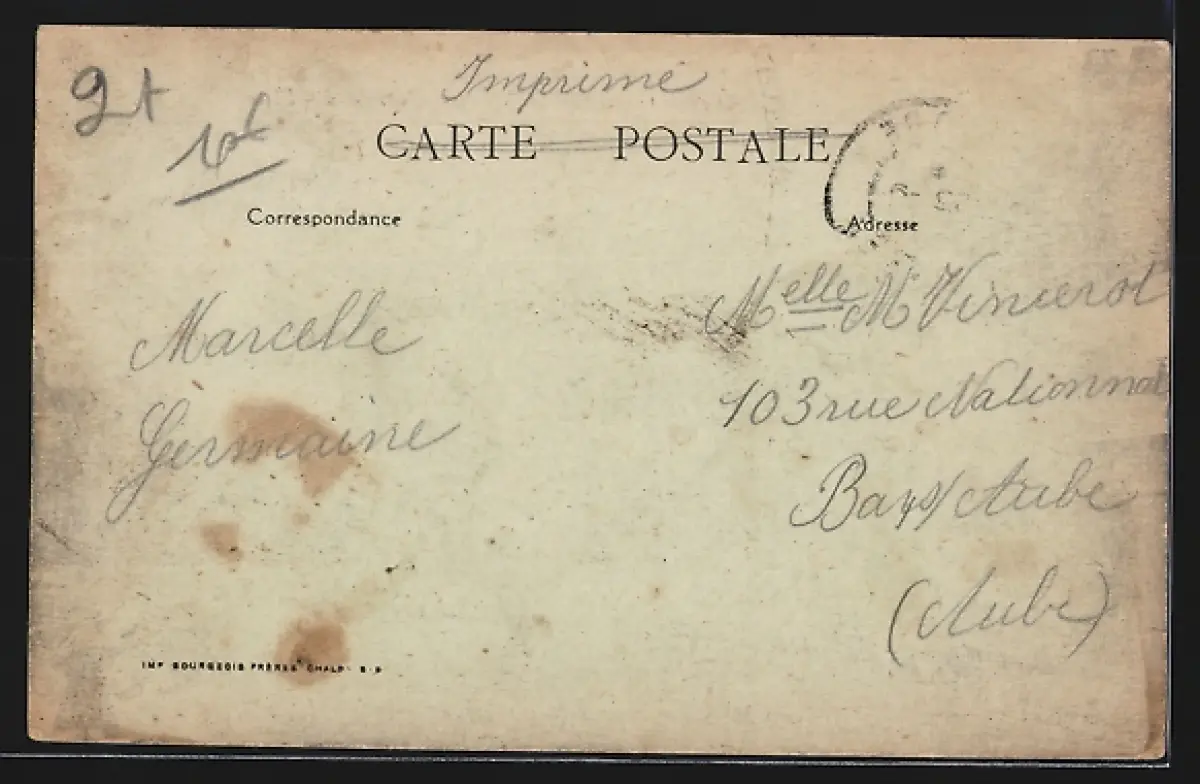 Imprimé
CARTE POSTALE
Correspondance
Adresse
Marcelle
Germaine
Melle M Vinierot
103 rue National
Bar s/ Aube
(Aube)
IMP BOURGEOIS FRÈRES CHALP S-S